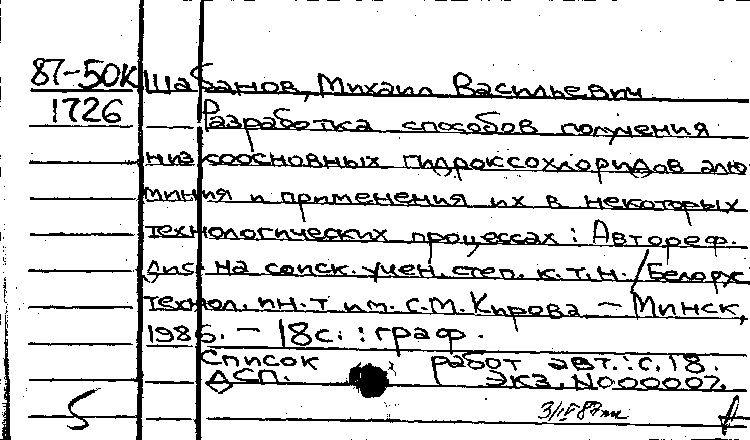 87-50К Шабанов, Михаил Васильевич
1726 Разработка способов получения
низкоосновных гидроксохлоридов алю
миния и применения их в некоторых
технологических процессах: Автореф.
дис. на соиск. учен. степ. к.т.н. / Белорус
технол. ин-т им. С.М. Кирова – Минск,
1986. – 18с. : граф.
Список работ авт.: с. 18.
ДСП. Экз. №00007.
5